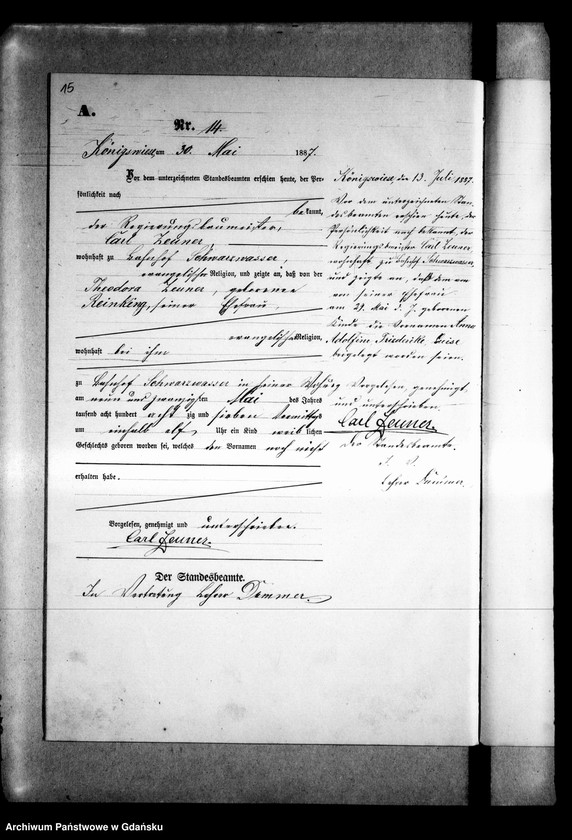 15
A.
Nr. 14.
Königswiese, am 30. Mai 1887.
Vor dem unterzeichneten Standesbeamten erschien heute, der Per-
sönlichkeit nach
bekannt,
der Regierungsbaumeister,
Carl Zeuner,
wohnhaft zu Bahnhof Schwarzwasser,
evangelischer Religion, und zeigte an, daß von der
Theodora Zeuner, geborenen
Reinking, seiner Ehefrau,
evangelischer Religion,
wohnhaft bei ihm
zu Bahnhof Schwarzwasser in seiner Wohnung
am neun und zwanzigsten Mai des Jahres
tausend acht hundert achtzig und sieben Vormittags
um einhalb elf Uhr ein Kind weiblichen
Geschlechts geboren worden sei, welches den Vornamen noch nicht
erhalten habe.
Vorgelesen, genehmigt und unterschrieben.
Carl Zeuner.
Der Standesbeamte.
In Vertretung Lehrer Dimmer.
Königswiese, den 13. Juli 1887.
Vor dem unterzeichneten Stan-
desbeamten erschien heute, der
Persönlichkeit nach bekannt, der
Regierungsbaumeister Carl Zeuner
wohnhaft zu Bahnhof Schwarzwasser,
und zeigte an, daß dem
von seiner Ehefrau
am 29. Mai d. J. geborenen
Kinde die Vornamen Anna
Adolfine Friederike Luise
beigelegt worden seien.
Vorgelesen, genehmigt
und unterschrieben.
Carl Zeuner.
Der Standesbeamte.
J. V.
Lehrer Dimmer.
Archiwum Państwowe w Gdańsku